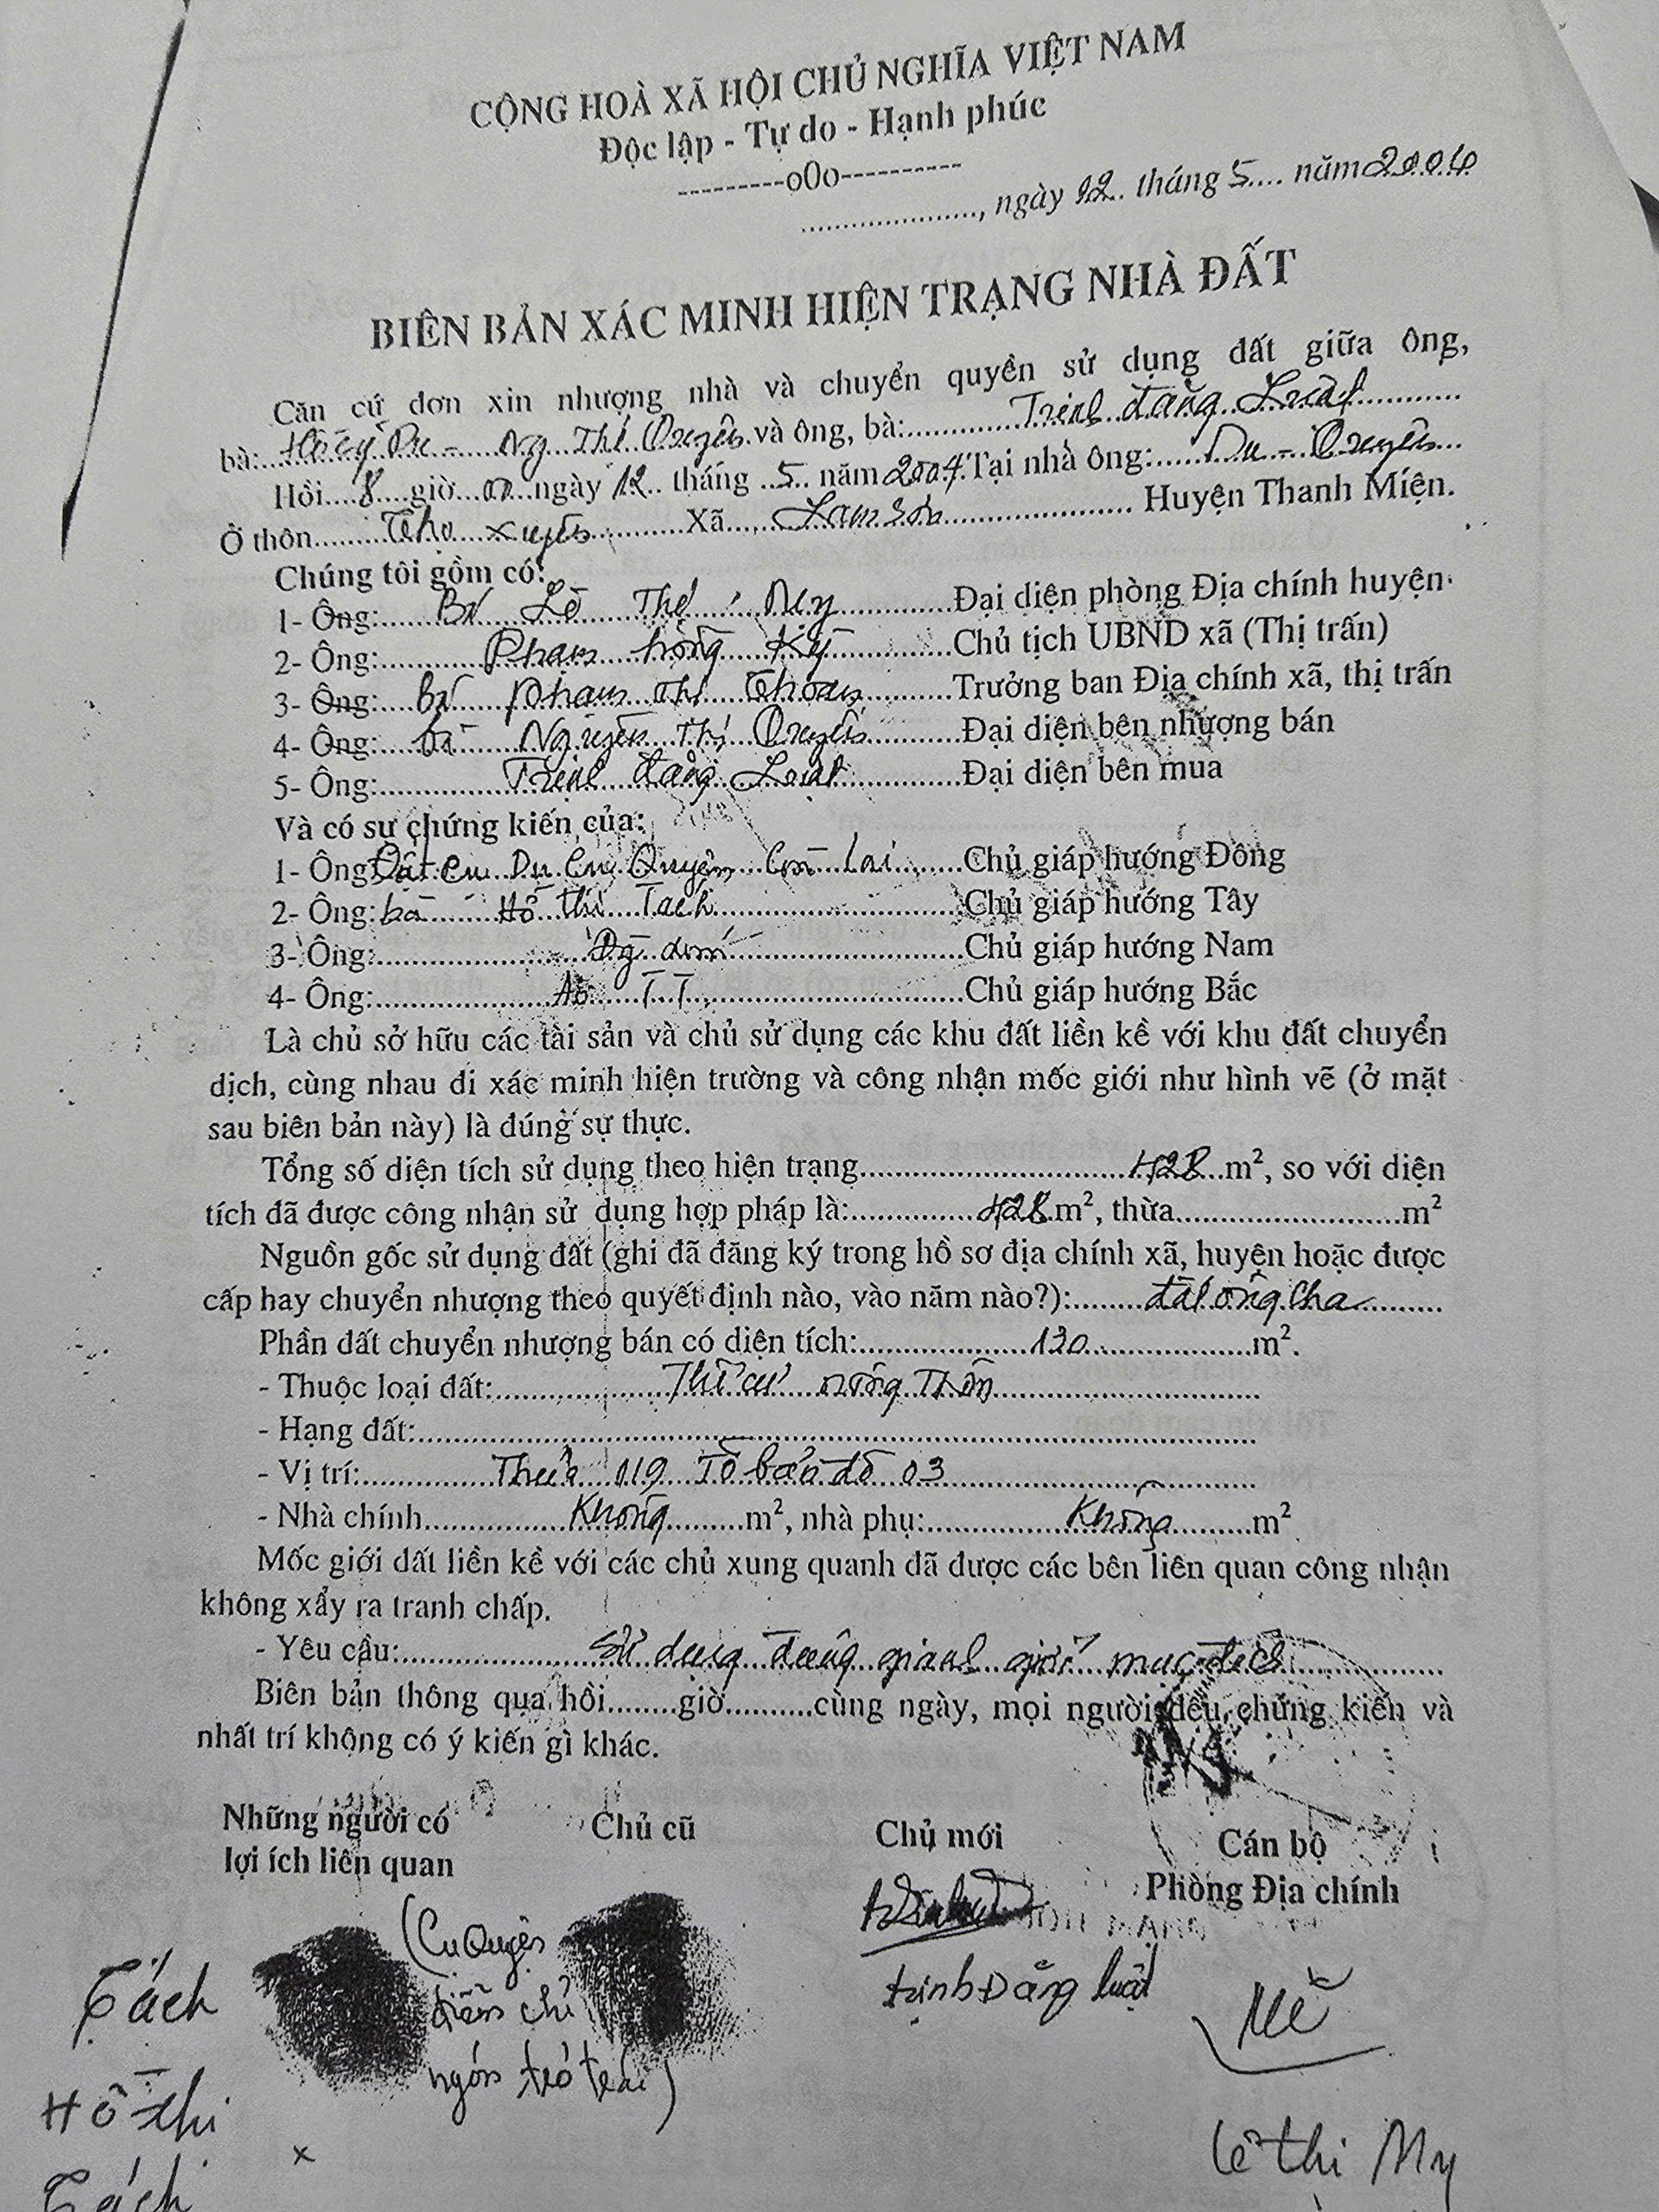 CỘNG HOÀ XÃ HỘI CHỦ NGHĨA VIỆT NAM
Độc lập - Tự do - Hạnh phúc
---------o0o----------
...................., ngày 12.. tháng 5.... năm 2004
BIÊN BẢN XÁC MINH HIỆN TRẠNG NHÀ ĐẤT
Căn cứ đơn xin nhượng nhà và chuyển quyền sử dụng đất giữa ông,
bà:.... Du - Ng Thị Quyên và ông, bà:............ Trịnh đăng Luật............
Hồi....8....giờ...00...ngày 12.. tháng ..5.. năm 2004. Tại nhà ông:...... Du - Quyên...
Ở thôn......... Thọ xuyên............Xã...... Lam sơn.................... Huyện Thanh Miện.
Chúng tôi gồm có:
1- Ông:...... Bà Lê Thị My............Đại diện phòng Địa chính huyện
2- Ông:......... Phạm hồng Kỳ............Chủ tịch UBND xã (Thị trấn)
3- Ông:.... Bà Phạm thị Thoan.........Trưởng ban Địa chính xã, thị trấn
4- Ông:.... bà Nguyễn Thị Quyên.........Đại diện bên nhượng bán
5- Ông:............ Trịnh đăng Luật............Đại diện bên mua
Và có sự chứng kiến của:
1- Ông Đất cụ Du cụ Quyên còn lại......Chủ giáp hướng Đông
2- Ông: bà Hồ thị Tách.....................Chủ giáp hướng Tây
3- Ông:.....................................Chủ giáp hướng Nam
4- Ông:.................. Ao T T......................Chủ giáp hướng Bắc
Là chủ sở hữu các tài sản và chủ sử dụng các khu đất liền kề với khu đất chuyển
dịch, cùng nhau đi xác minh hiện trường và công nhận mốc giới như hình vẽ (ở mặt
sau biên bản này) là đúng sự thực.
Tổng số diện tích sử dụng theo hiện trạng........................... 428...m², so với diện
tích đã được công nhận sử dụng hợp pháp là:............... 428.m², thừa.........................m²
Nguồn gốc sử dụng đất (ghi đã đăng ký trong hồ sơ địa chính xã, huyện hoặc được
cấp hay chuyển nhượng theo quyết định nào, vào năm nào?):........ đất ông cha..........
Phần đất chuyển nhượng bán có diện tích:................... 130...................m².
- Thuộc loại đất:................... Thổ cư nông Thôn..............................
- Hạng đất:..........................................................................................
- Vị trí:............... Thửa 019 Tờ bản đồ 03...................................
- Nhà chính................ Không.........m², nhà phụ:................ Không.........m²
Mốc giới đất liền kề với các chủ xung quanh đã được các bên liên quan công nhận
không xẩy ra tranh chấp.
- Yêu cầu:..................... Sử dụng đúng gianh giới mục đích..................
Biên bản thông qua hồi........giờ..........cùng ngày, mọi người đều chứng kiến và
nhất trí không có ý kiến gì khác.
Những người có
lợi ích liên quan
Chủ cũ
Chủ mới
Cán bộ
Phòng Địa chính
(Cụ Quyên
điểm chỉ
ngón trỏ trái)
trịnh Đăng luật
Tách
Hồ thị
Tách
Lê thị My